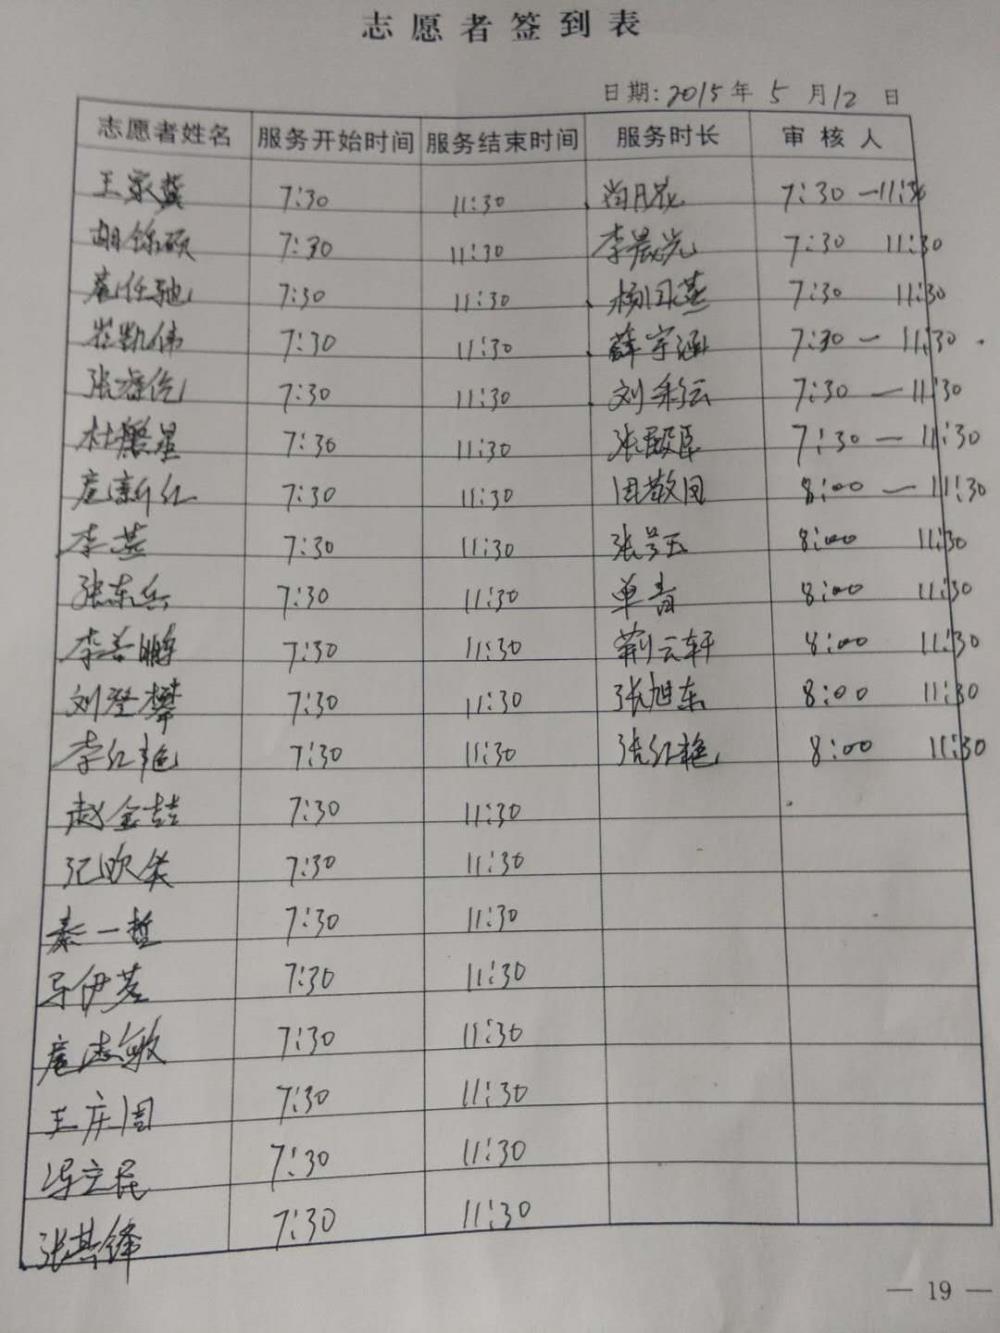 志愿者签到表
日期: 2015年 5 月12 日
志愿者姓名 服务开始时间 服务结束时间 服务时长 审核人
王家龚 7:30 11:30 尚月 7:30 —11:30
胡铄硕 7:30 11:30 李晨光 7:30 11:30
任驰 7:30 11:30 杨国燕 7:30 11:30
崔凯伟 7:30 11:30 薛宇涵 7:30 — 11:30
张 7:30 11:30 刘彩云 7:30 — 11:30
杜殷星 7:30 11:30 张殿臣 7:30 — 11:30
新红 7:30 11:30 周敬周 8:00 — 11:30
李燕 7:30 11:30 张玉 8:00 11:30
张东兵 7:30 11:30 单青 8:00 11:30
李善鹏 7:30 11:30 荆云轩 8:00 11:30
刘登攀 7:30 11:30 张旭东 8:00 11:30
李红艳 7:30 11:30 张红艳 8:00 11:30
赵金喆 7:30 11:30
欧 7:30 11:30
秦一哲 7:30 11:30
伊 7:30 11:30
志敏 7:30 11:30
王庆周 7:30 11:30
冯立民 7:30 11:30
张其锋 7:30 11:30
— 19 —